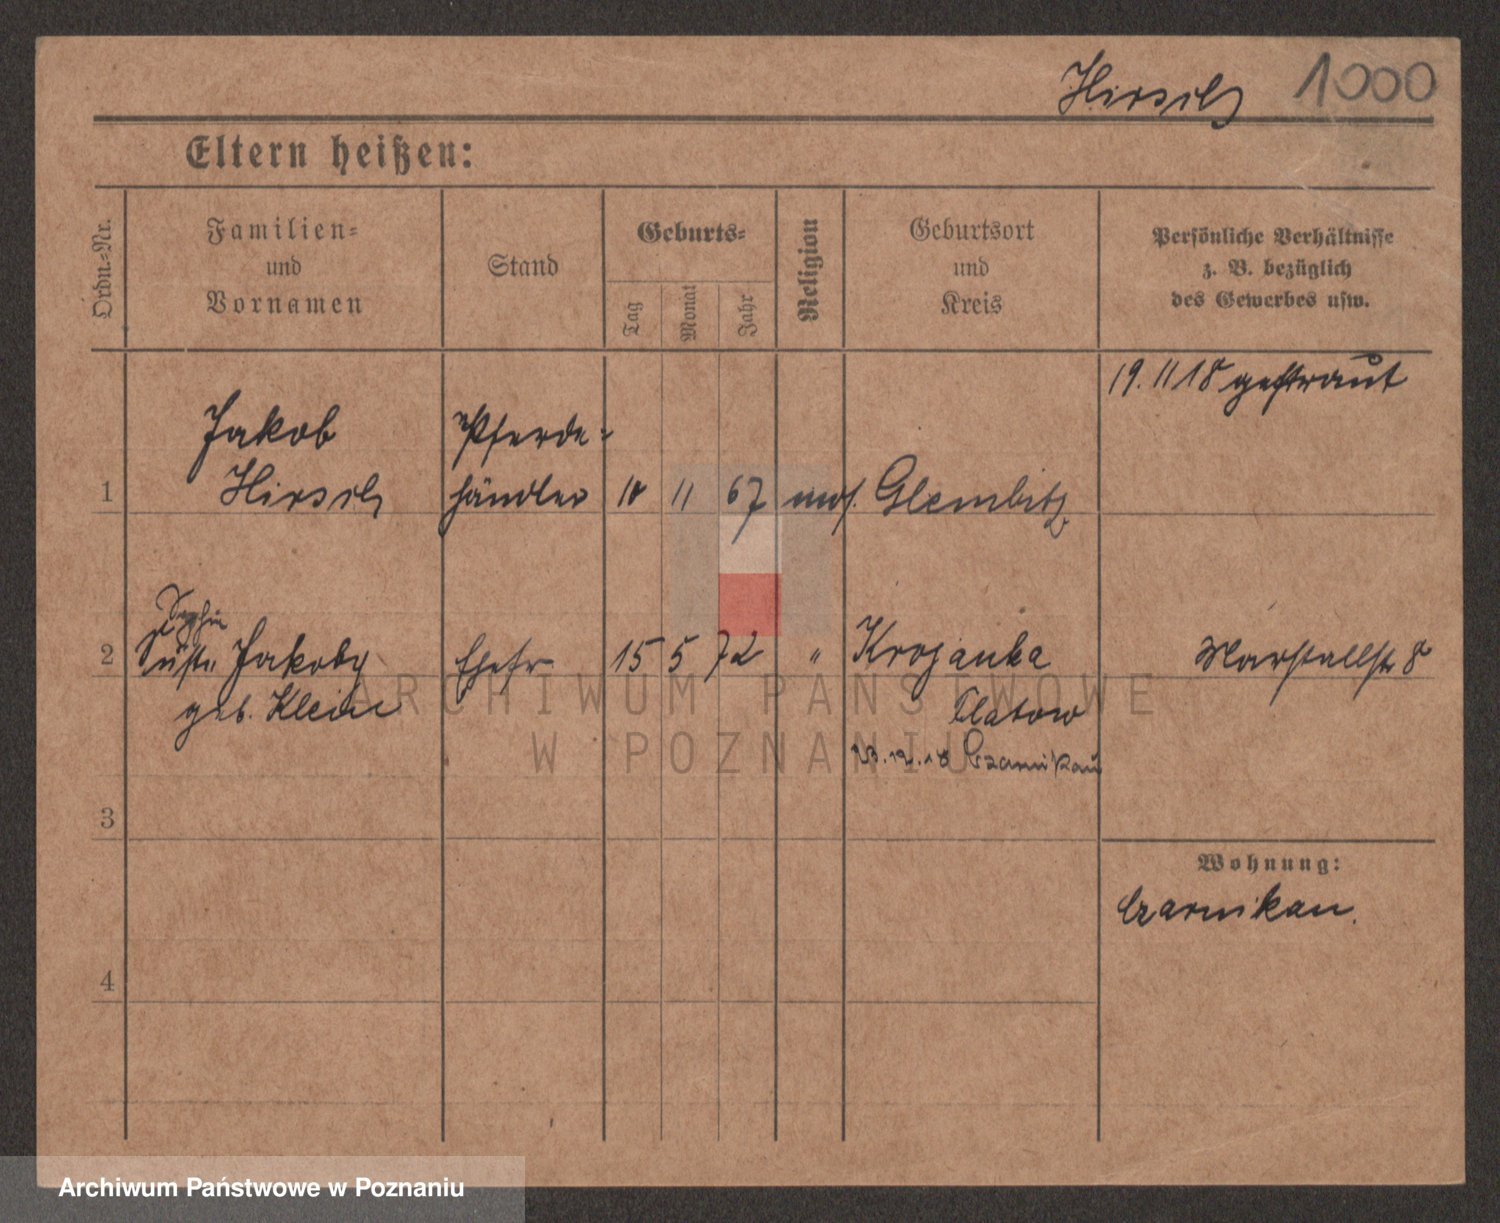 Hirsch 1000
Eltern heißen:
Ordn.-Nr.
Familien-
und
Vornamen
Stand
Geburts-
Tag
Monat
Jahr
Religion
Geburtsort
und
Kreis
Persönliche Verhältnisse
z. B. bezüglich
des Gewerbes usw.
19. 11 18 getraut
Jakob
Hirsch
Pferde-
händler
1
11 67 mos. Glembitz
Sophie
2 Jakoby
geb. Klein
Ehefr
15 5 72 " Krojanke
Flatow
23.12.18 Czarnikau
Marstallstr 8
3
Wohnung:
Czarnikau.
4
ARCHIWUM PAŃSTWOWE
W POZNANIU
Archiwum Państwowe w Poznaniu